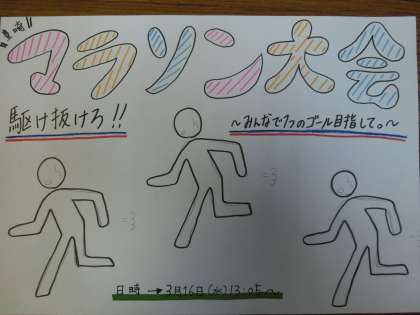 マラソン大会
駆け抜けろ!!
～みんなで1つのゴール目指して。～
日時→3月16日(水)13:05～